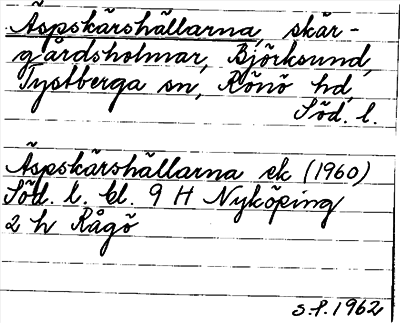 Äspskärshällarna, skär-
gårdsholmar, Björksund,
Tystberga sn, Rönö hd,
Söd. l.
Äspskärshällarna ek (1960)
Söd. l. bl. 9 H Nyköping
2 h Rågö
s.f. 1962